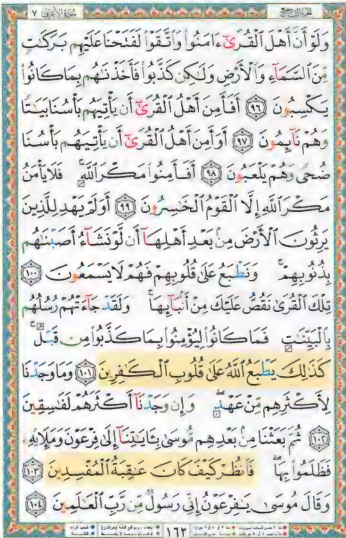 سُورَةُ الأَعْرَافِ ٧
وَلَوْ أَنَّ أَهْلَ ٱلْقُرَىٰٓ ءَامَنُوا۟ وَٱتَّقَوْا۟ لَفَتَحْنَا عَلَيْهِم بَرَكَٰتٍ
مِّنَ ٱلسَّمَآءِ وَٱلْأَرْضِ وَلَٰكِن كَذَّبُوا۟ فَأَخَذْنَٰهُم بِمَا كَانُوا۟
يَكْسِبُونَ ٩٦ أَفَأَمِنَ أَهْلُ ٱلْقُرَىٰٓ أَن يَأْتِيَهُم بَأْسُنَا بَيَٰتًا
وَهُمْ نَآئِمُونَ ٩٧ أَوَأَمِنَ أَهْلُ ٱلْقُرَىٰٓ أَن يَأْتِيَهُم بَأْسُنَا
ضُحًى وَهُمْ يَلْعَبُونَ ٩٨ أَفَأَمِنُوا۟ مَكْرَ ٱللَّهِ ۚ فَلَا يَأْمَنُ
مَكْرَ ٱللَّهِ إِلَّا ٱلْقَوْمُ ٱلْخَٰسِرُونَ ٩٩ أَوَلَمْ يَهْدِ لِلَّذِينَ
يَرِثُونَ ٱلْأَرْضَ مِنۢ بَعْدِ أَهْلِهَآ أَن لَّوْ نَشَآءُ أَصَبْنَٰهُم
بِذُنُوبِهِمْ ۚ وَنَطْبَعُ عَلَىٰ قُلُوبِهِمْ فَهُمْ لَا يَسْمَعُونَ ١٠٠
تِلْكَ ٱلْقُرَىٰ نَقُصُّ عَلَيْكَ مِنْ أَنۢبَآئِهَا ۚ وَلَقَدْ جَآءَتْهُمْ رُسُلُهُم
بِٱلْبَيِّنَٰتِ فَمَا كَانُوا۟ لِيُؤْمِنُوا۟ بِمَا كَذَّبُوا۟ مِن قَبْلُ ۚ
كَذَٰلِكَ يَطْبَعُ ٱللَّهُ عَلَىٰ قُلُوبِ ٱلْكَٰفِرِينَ ١٠١ وَمَا وَجَدْنَا
لِأَكْثَرِهِم مِّنْ عَهْدٍ ۖ وَإِن وَجَدْنَآ أَكْثَرَهُمْ لَفَٰسِقِينَ
١٠٢ ثُمَّ بَعَثْنَا مِنۢ بَعْدِهِم مُّوسَىٰ بِـَٔايَٰتِنَآ إِلَىٰ فِرْعَوْنَ وَمَلَإِي۟هِۦ
فَظَلَمُوا۟ بِهَا ۖ فَٱنظُرْ كَيْفَ كَانَ عَٰقِبَةُ ٱلْمُفْسِدِينَ ١٠٣
وَقَالَ مُوسَىٰ يَٰفِرْعَوْنُ إِنِّى رَسُولٌ مِّن رَّبِّ ٱلْعَٰلَمِينَ ١٠٤
١٦٣